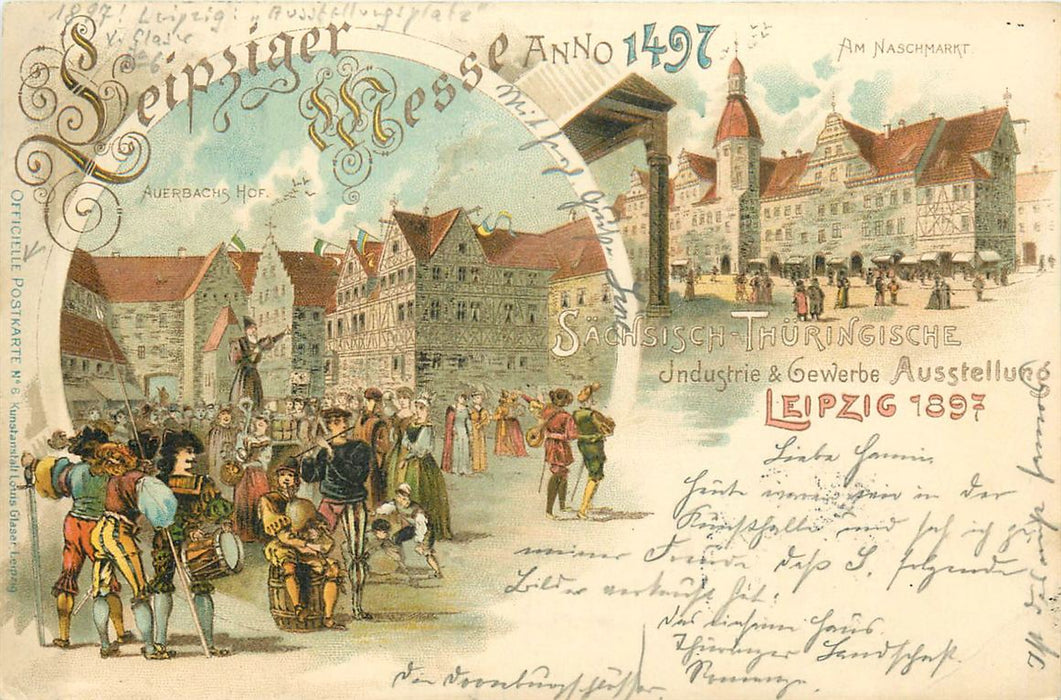 1897! Leipzig: "Ausstellungsplatz"
v. Glaser
Leipziger
Messe
ANNO 1497
AM NASCHMARKT.
AUERBACHS HOF.
OFFICIELLE POSTKARTE Nº 6 Kunstanstalt Louis Glaser, Leipzig
SÄCHSISCH-THÜRINGISCHE
Industrie & Gewerbe Ausstellung
LEIPZIG 1897
Liebe
Heute waren wir in der
Kunsthalle und sah ich zu
meiner Freude, daß S. folgende
Bilder verkauft hat:
Das einsame Haus,
Thüringer Landschaft,
Romanze
Die Dornburgschlösser